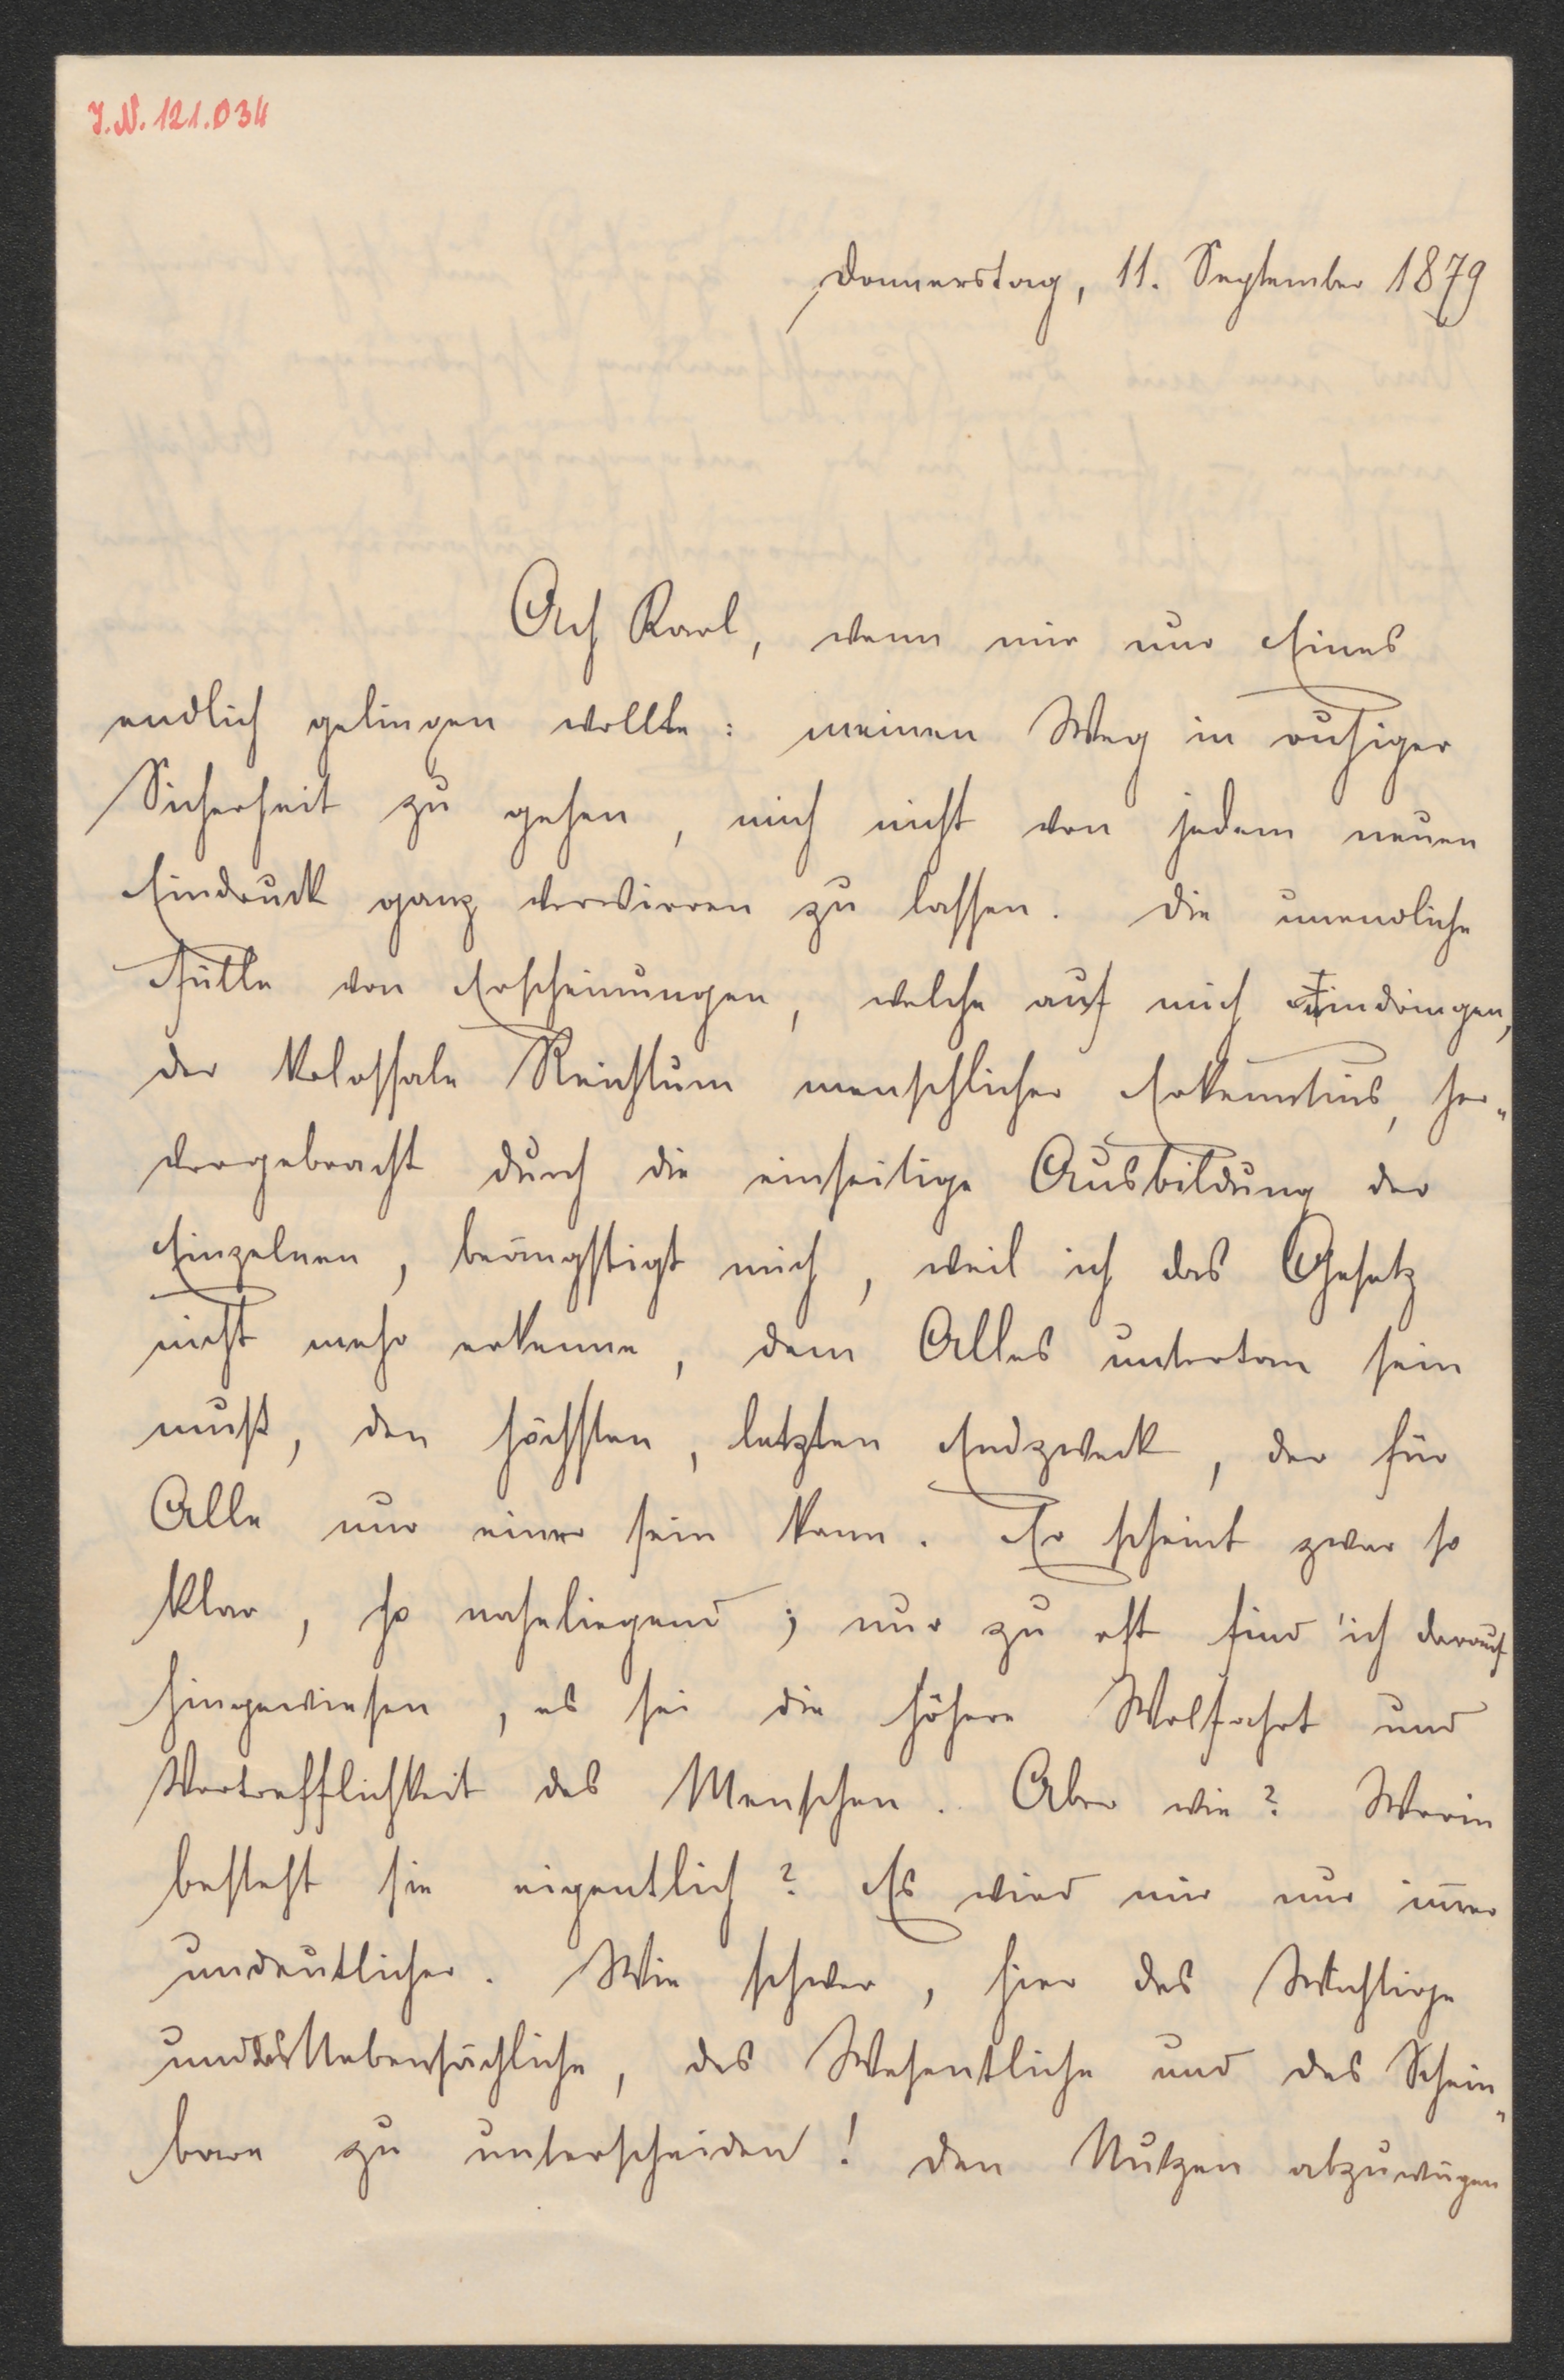 J.N. 121.034
Donnerstag, 11. September 1879
Ach Karl, wenn mir nur Eines
endlich gelingen wollte: meinen Weg in ruhiger
Sicherheit zu gehen, mich nicht von jedem neuen
Eindruck ganz verwirren zu lassen. Die unendliche
Fülle von Erscheinungen, welche auf mich eindringen,
der kolossale Reichtum menschlicher Erkenntnis, her-
vorgebracht durch die einseitige Ausbildung der
Einzelnen, beängstigt mich, weil ich das Gesetz
nicht mehr erkenne, dem Alles untertan sein
muß, den höchsten, letzten Endzweck, der für
Alle nur einer sein kann. Er scheint zwar so
klar, so naheliegend; nur zu oft find' ich darauf
hingewiesen, es sei die höhere Wolfahrt und
Vortrefflichkeit des Menschen. Aber wie? Worin
besteht sie eigentlich? Es wird mir nur im̅er
undeutlicher. Wie schwer, hier das Wichtige
und das Nebensächliche, das Wesentliche und das Schein-
bare zu unterscheiden! Den Nutzen abzuwägen